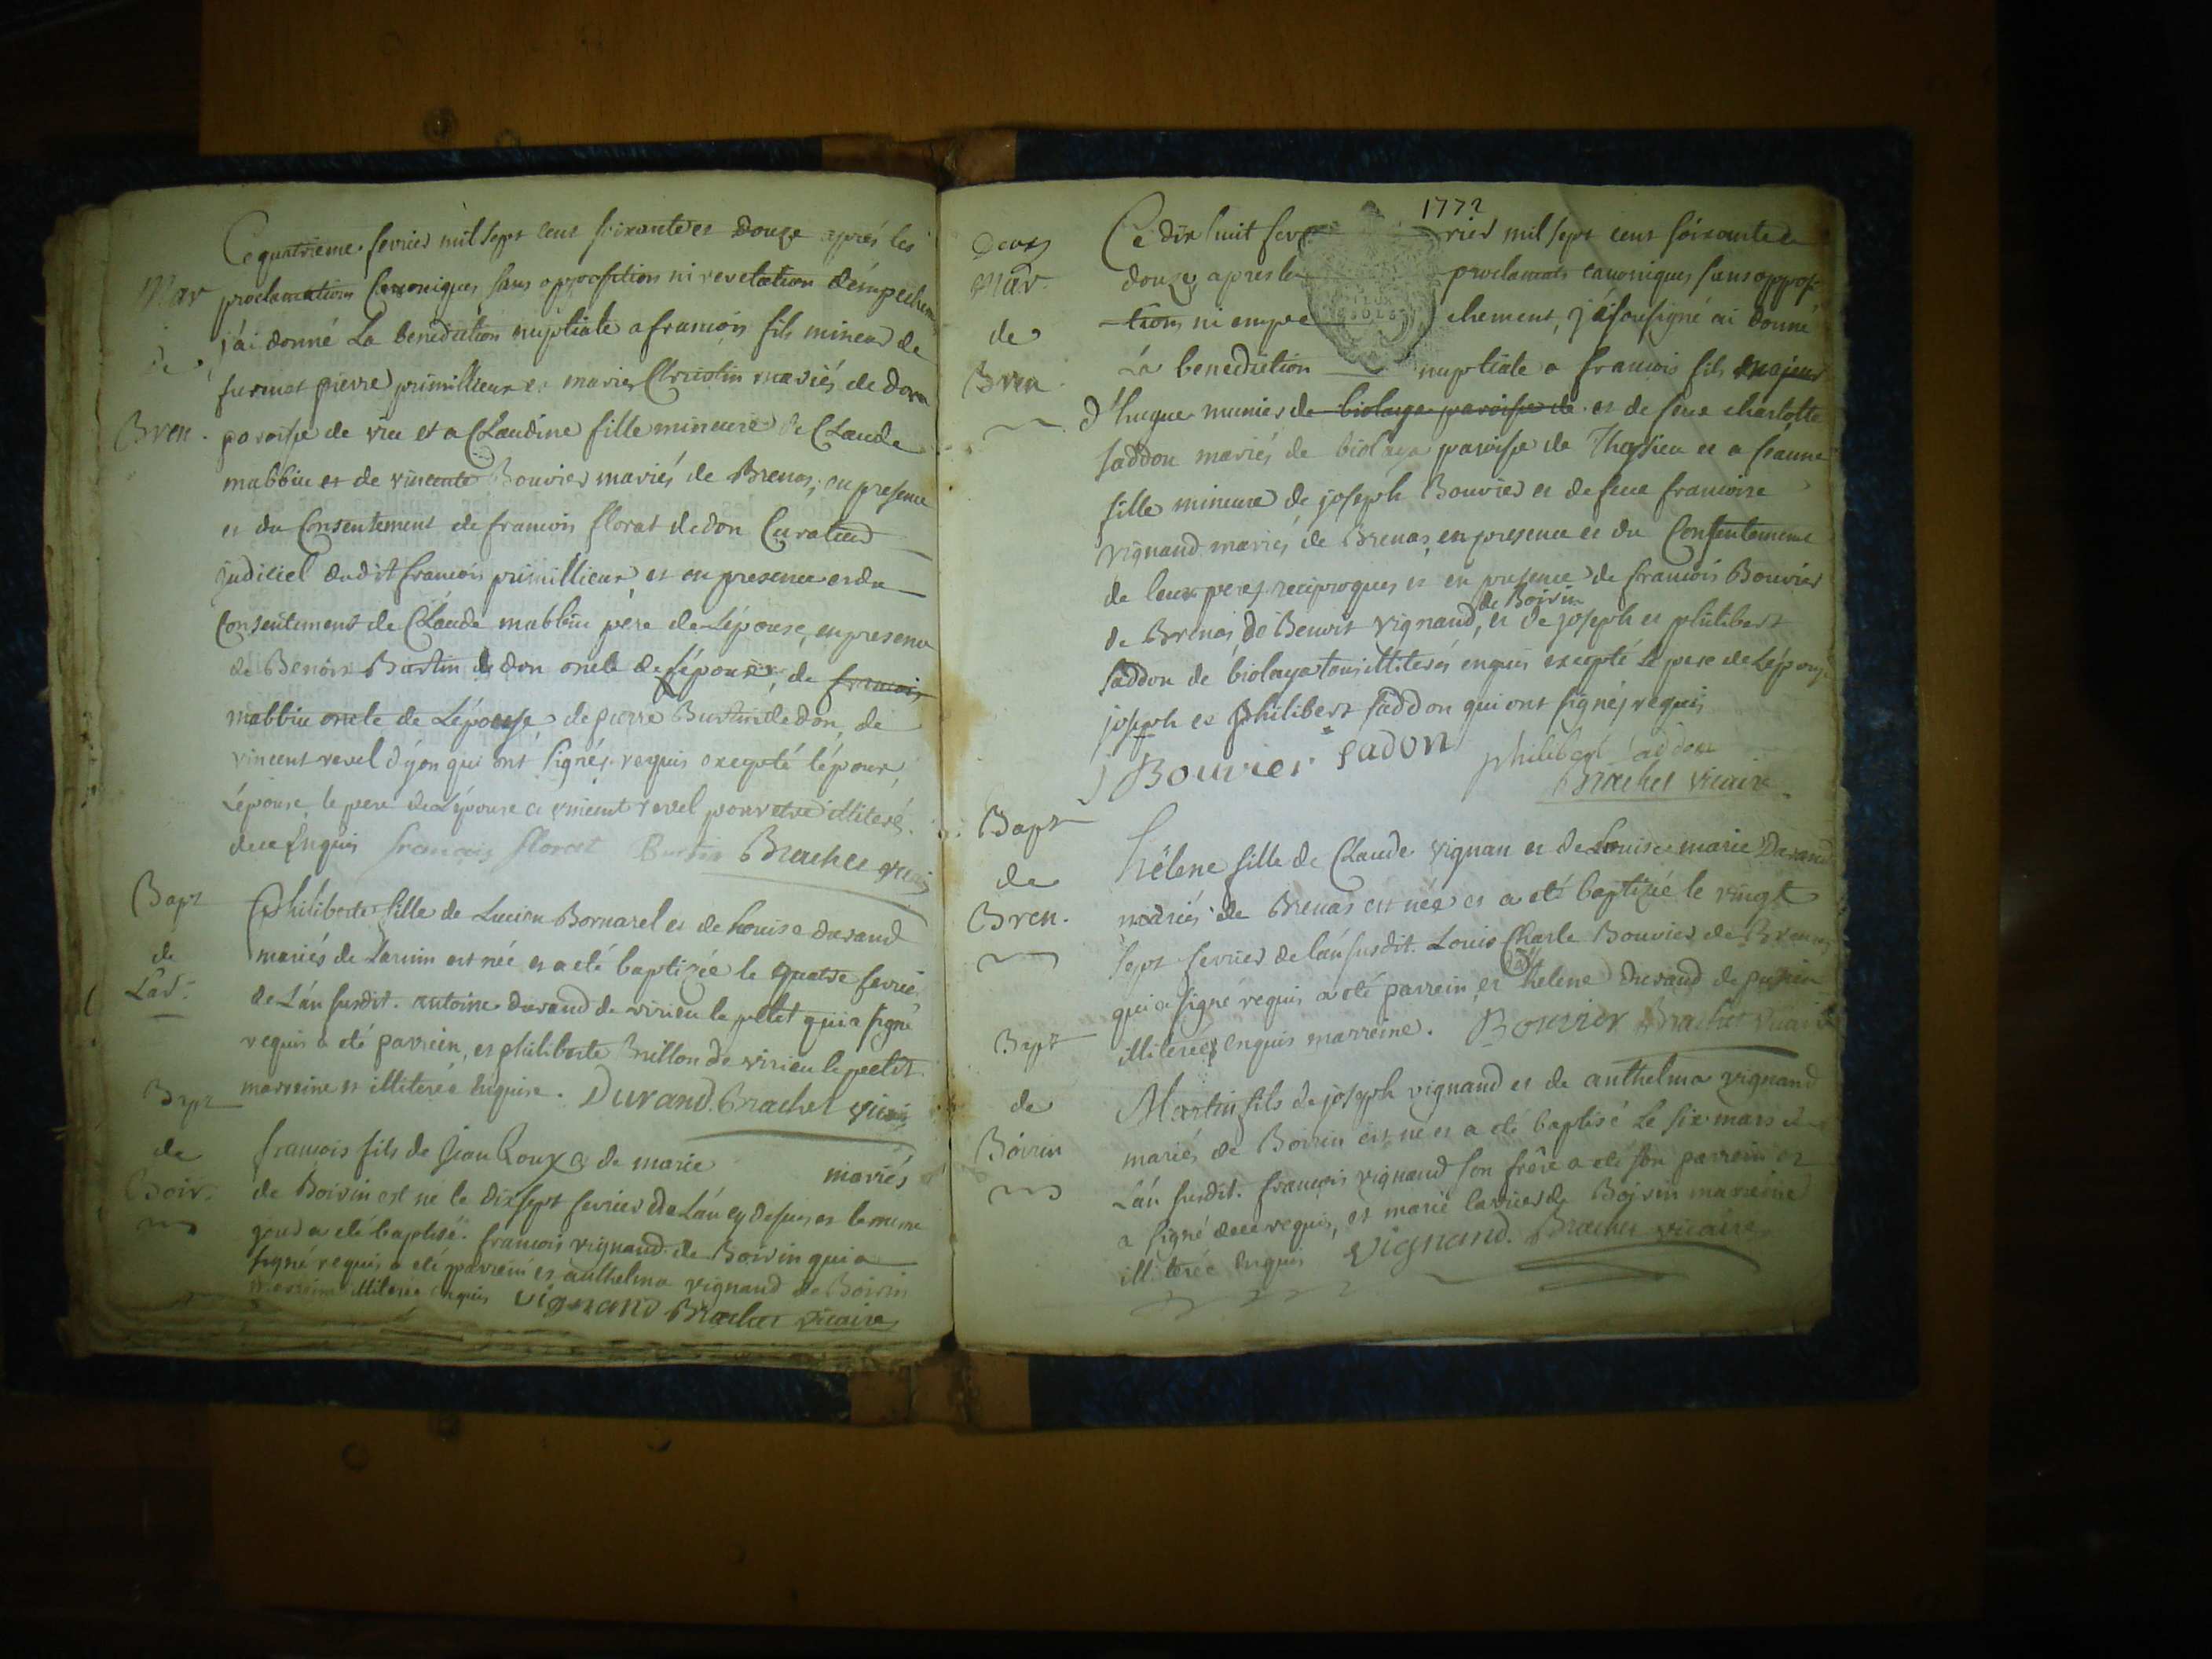 Ce quatrieme fevrier mil sept cent soixante et douze aprés les
Mar
proclamations Canoniques sans opposition ni revelation d'empechement
j'ai donné La benediction nuptiale a francois fils mineur de
de
furmet pierre primillieux et marie Christin mariés de don
Bren.
paroisse de vieu et a Claudine fille mineure de Claude
mabbiu et de vincente Bouvier mariés de Brenas, en presence
et du Consentement de francois florat de don Curateur
judiciel dudit francois primillieux, et en presence et du
Consentement de Claude mabbiu pere de L'épouse, en presence
de Benoit Burtin de don oncle de L'épouse, de francois
mabbiu oncle de L'épouse, de pierre Burtin de don, de
vincent revel d'yon qui ont signés requis excepté l'époux,
L'épouse, le pere de L'épouse et vincent revel pour etre illiterés
de ce Enquis francois florat Burtin Brachet vicaire
Bapt
de
Lav.
Philiberte fille de Lucien Bornarel et de Louise durand
mariés de Lavnin est née et a eté baptizée le quatre fevrier
de L'an susdit. antoine durand de virieu le petit qui a signé
requis a eté parrein, et philiberte Brillon de virieu le petit
marreine et illiterée Enquise. Durand. Brachet vicaire
Bapt
de
Boir.
francois fils de Jean Roux et de marie mariés
de Boirin est né le dix sept fevrier de L'an cy dessus et le meme
jour a eté baptisé. francois vignand de Boirin qui a
signé requis a eté parrein et anthelma vignand de Boirin
marreine illiterée enquis vignand Brachet vicaire
1772
Deux
Mar.
de
Bren
Ce dix huit fevrier mil sept cent soixante et
douze, apres les proclamats canoniques sans opposi-
-tions ni empechement, j'ai sousigné ai donné
La benediction nuptiale a francois fils majeur
d'hugue munier de biolaya paroisse de et de feue charlotte
saddon mariés de biolaya paroisse de Thesieu et a jeanne
fille mineure de joseph Bouvier et de feue francoise
vignand mariés de Brenas, en presence et du Consentement
de leur peres reciproques et en presence de francois Bouvier
de Brenas, de Benoit vignand, de Boirin et de joseph et philibert
saddon de biolaya tous illiterés enquis excepté Le pere de L'épouse
joseph et Philibert saddon qui ont signés requis
J Bouvier sadon philibert saddon
Brachet vicaire
Bapt
de
Bren.
hélene fille de Claude vignan et de Louise marie Durand
mariés de Brenas est née et a eté baptizée le vingt
sept fevrier de l'an susdit. Louis Charle Bouvier de Brenas
qui a signé requis a eté parrein, et helene durand de
illiterée enquis marreine. Bouvier Brachet vicaire
Bapt
de
Boirin
Martin fils de joseph vignand et de anthelma vignand
mariés de Boirin est né et a eté baptisé Le six mars de
L'an susdit. francois vignand son frère a eté son parrein et
a signé de ce requis, et marie lavrier de Boirin marreine
illiterée enquis vignand. Brachet vicaire